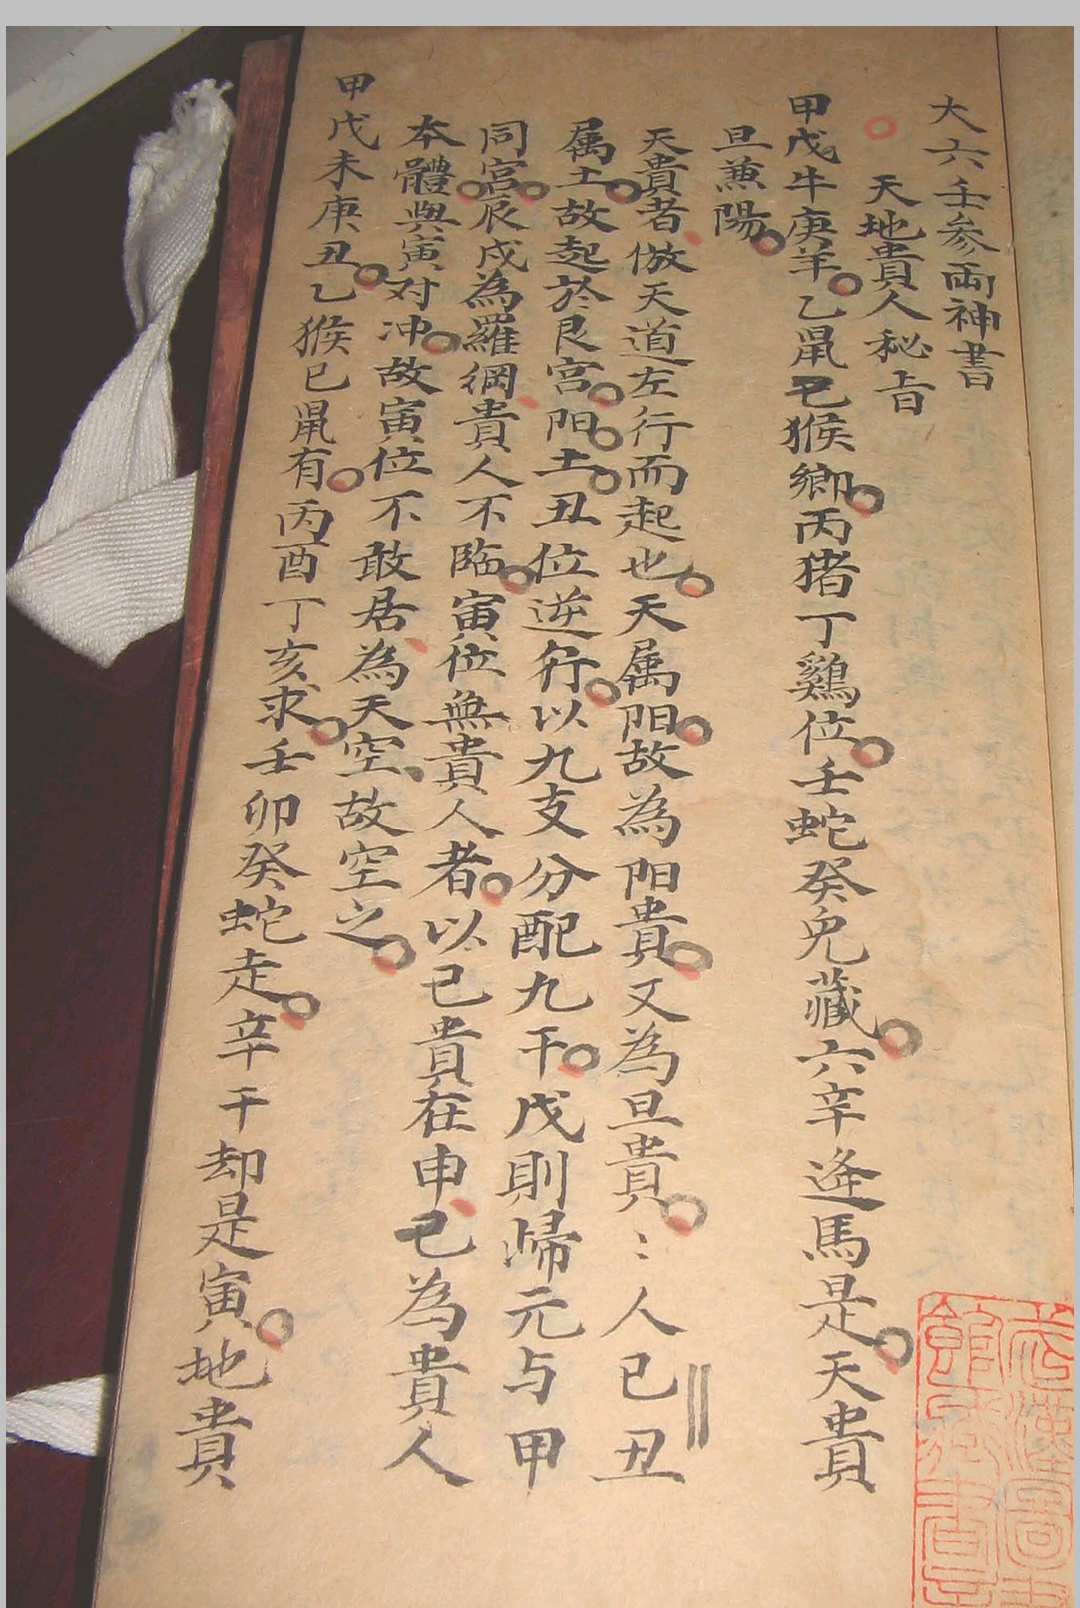 大六壬参両神書
天地貴人秘旨
甲戊牛庚羊乙鼠己猴郷丙猪丁鷄位壬蛇癸兎藏六辛逢馬是天貴
旦兼陽
天貴者倣天道左行而起也天属阳故為阳貴又為旦貴〻人已丑
属土故起於艮宫阳土丑位逆行以九支分配九干戊則歸元与甲
同宫辰戌為羅綱貴人不臨寅位無貴人者以己貴在申己為貴人
本體與寅对冲故寅位不敢居為天空故空之
甲戊未庚丑乙猴已鼠有丙酉丁亥求壬卯癸蛇走辛干却是寅地貴
武漢圖書
館藏書